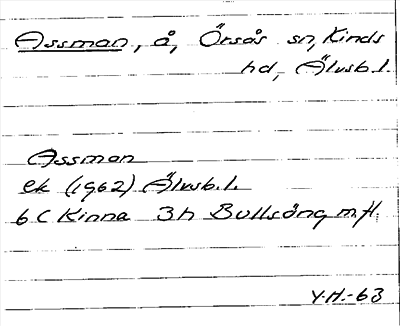 Assman, å, Örsås sn, Kinds
hd, Älvsb.l.
Assman
ek (1962) Älvsb.l.
6 C Kinna 3h Bullsäng m.fl.
Y.H.-63